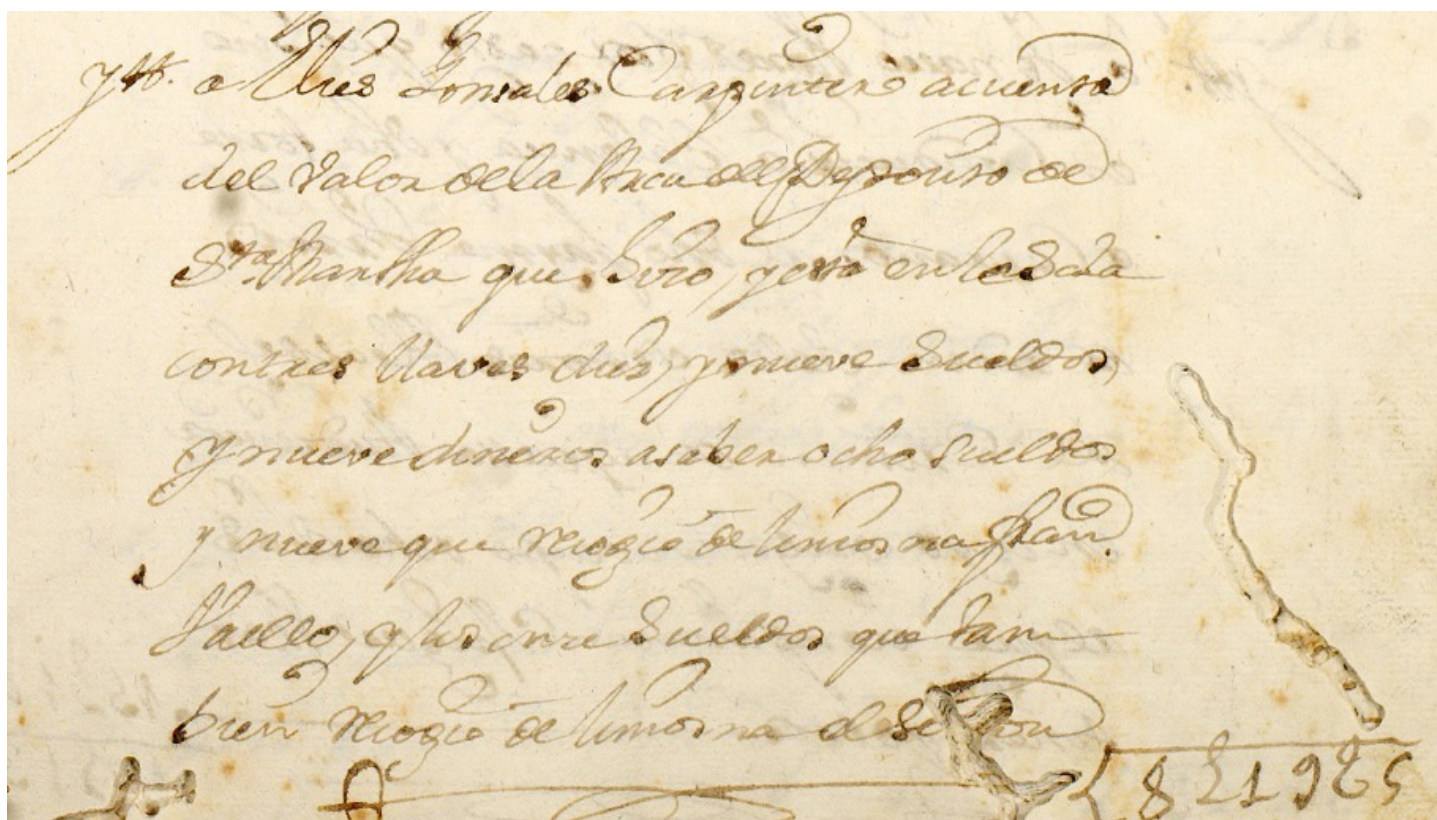 ytt. a Luis Gonsales Carpintero acuenta
del valor dela Arca del Deposito de
Sta. Martha que hizo, y está en la Sala
contres llaves diez, y nueve Sueldos,
y nueve dineros asaber ocho Sueldos
y nueve que recogio de limosna Fran.
Vaello, y los onze Sueldos que tam
bien recogio de limosna el